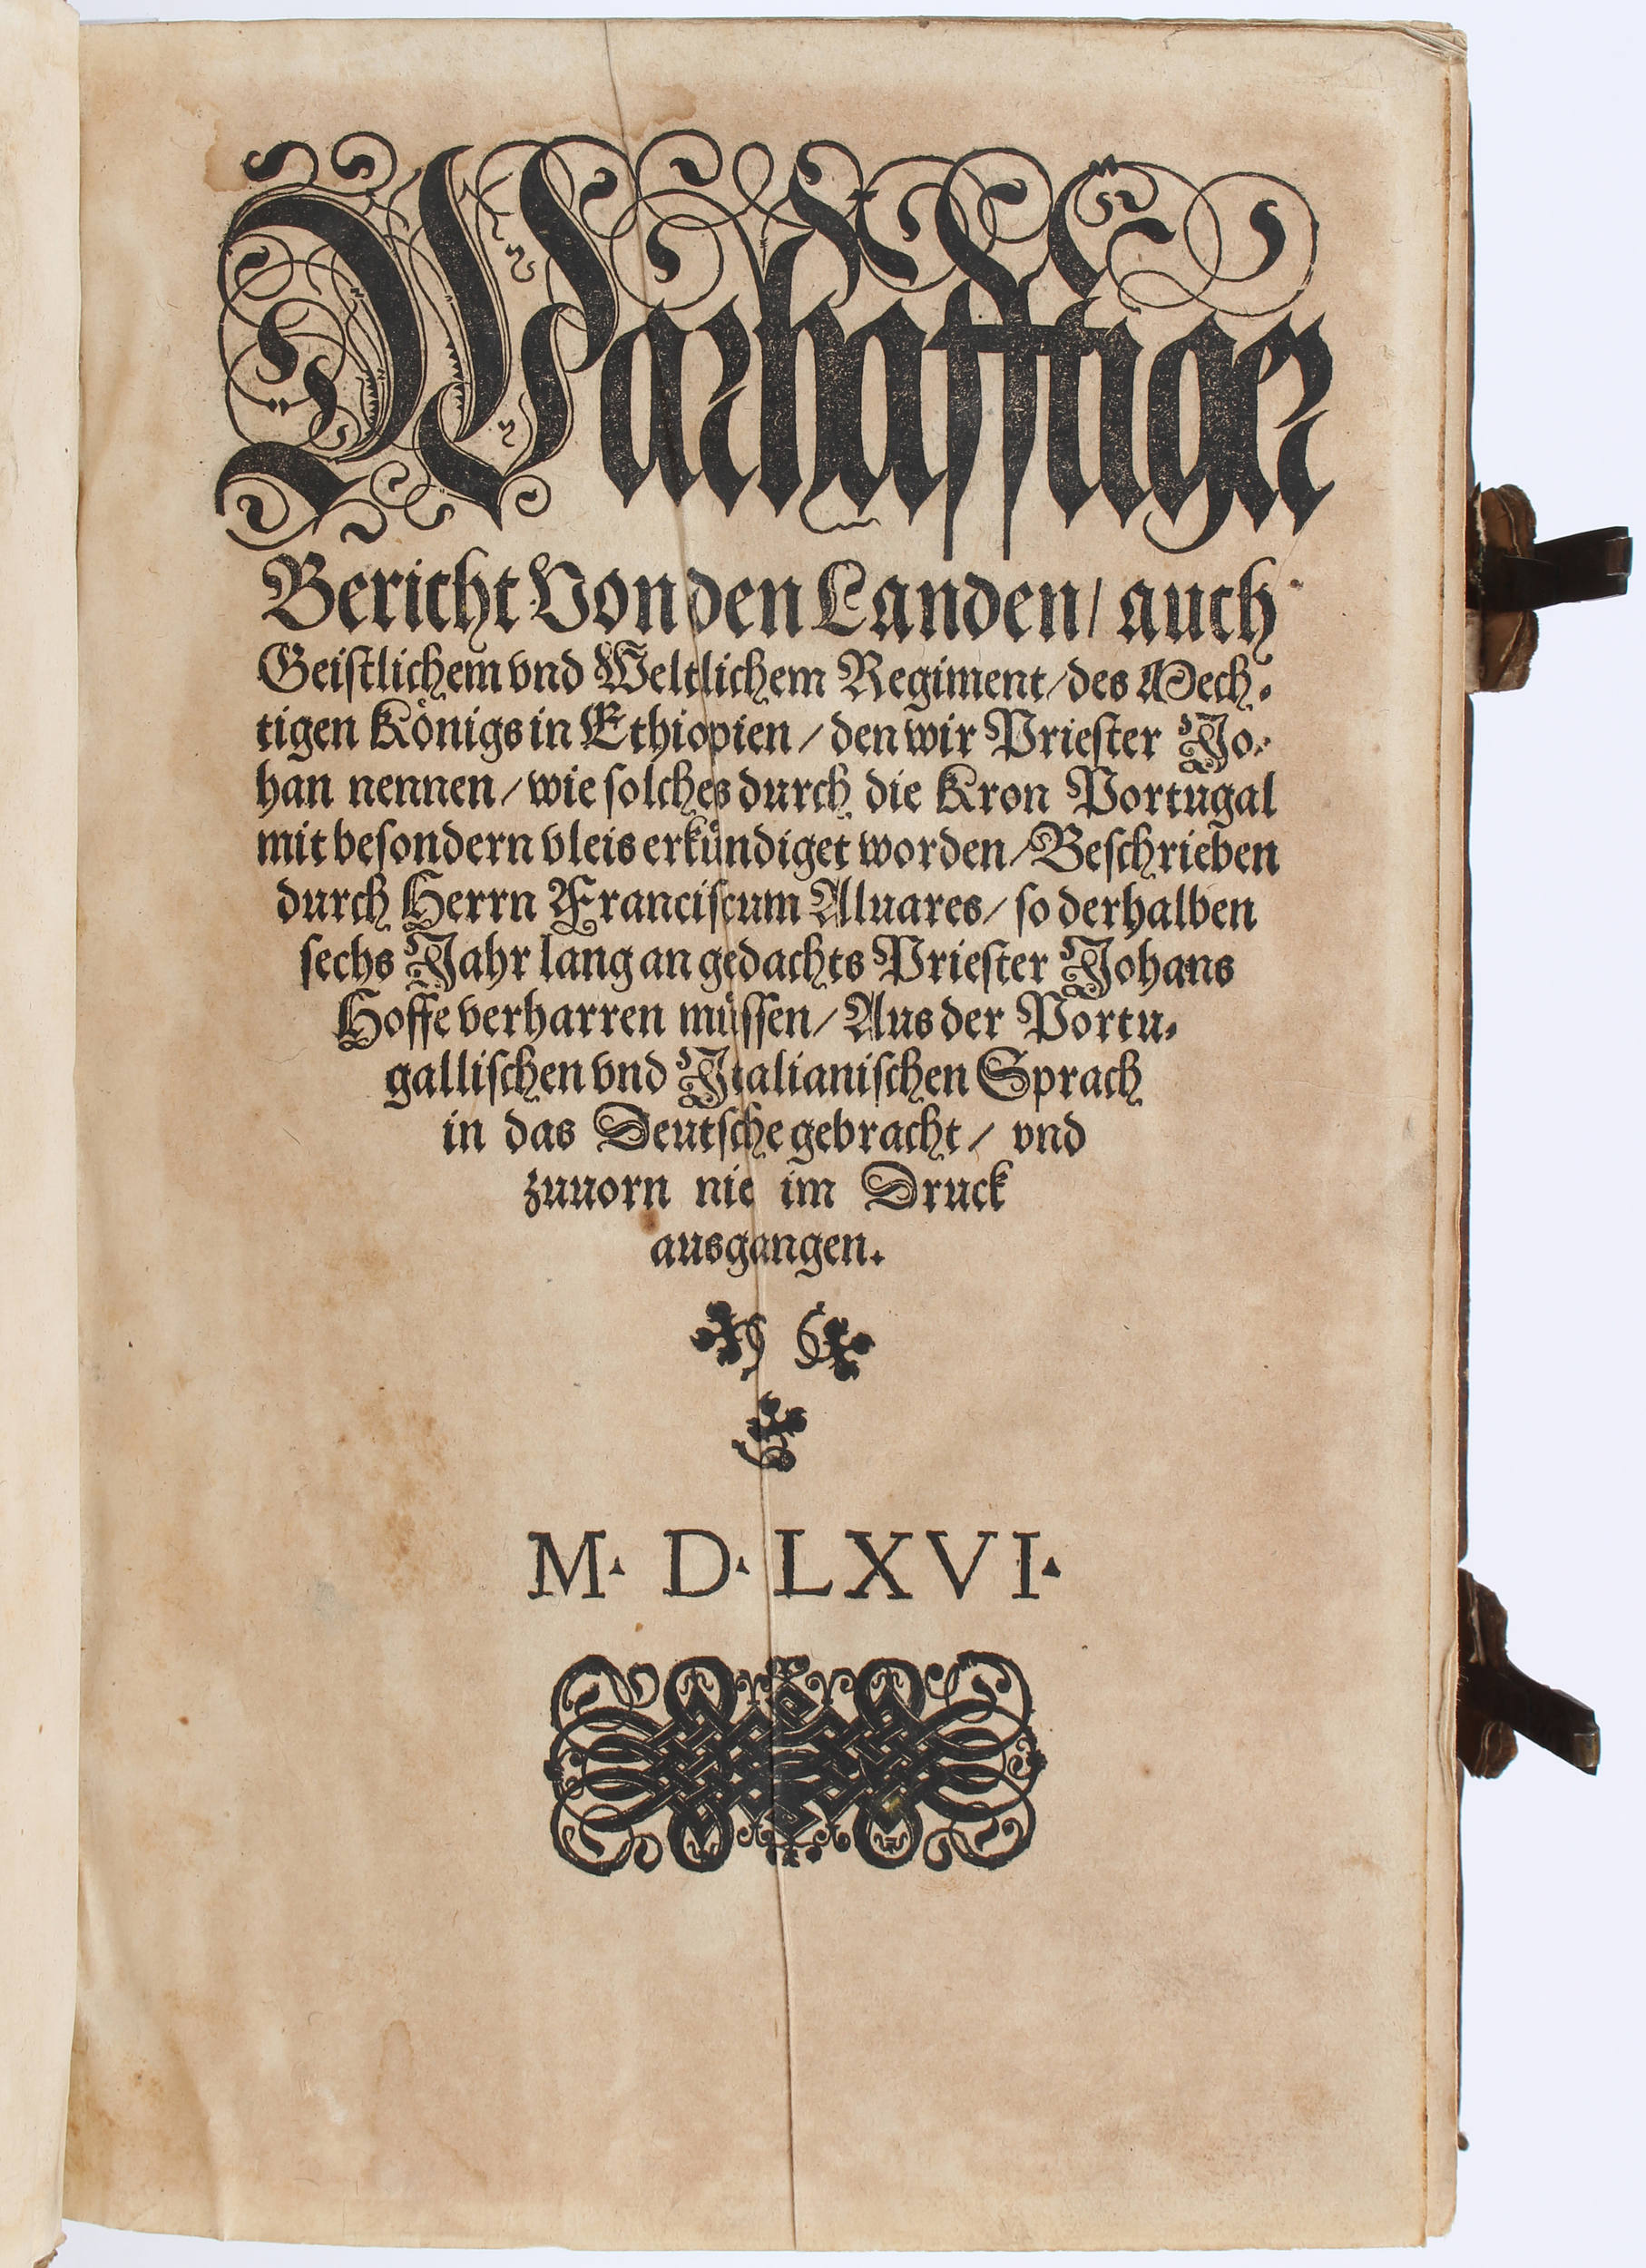 Warhafftiger
Bericht Von den Landen / auch
Geistlichem vnd Weltlichem Regiment / des Mech⸗
tigen Königs in Ethiopien / den wir Priester Jo⸗
han nennen / wie solches durch die Kron Portugal
mit besondern vleis erkündiget worden / Beschrieben
durch Herrn Franciscum Aluares / so derhalben
sechs Jahr lang an gedachts Priester Johans
Hoffe verharren müssen / Aus der Portu⸗
gallischen vnd Italianischen Sprach
in das Deutsche gebracht / vnd
zuuorn nie im Druck
ausgangen.
M. D. LXVI.